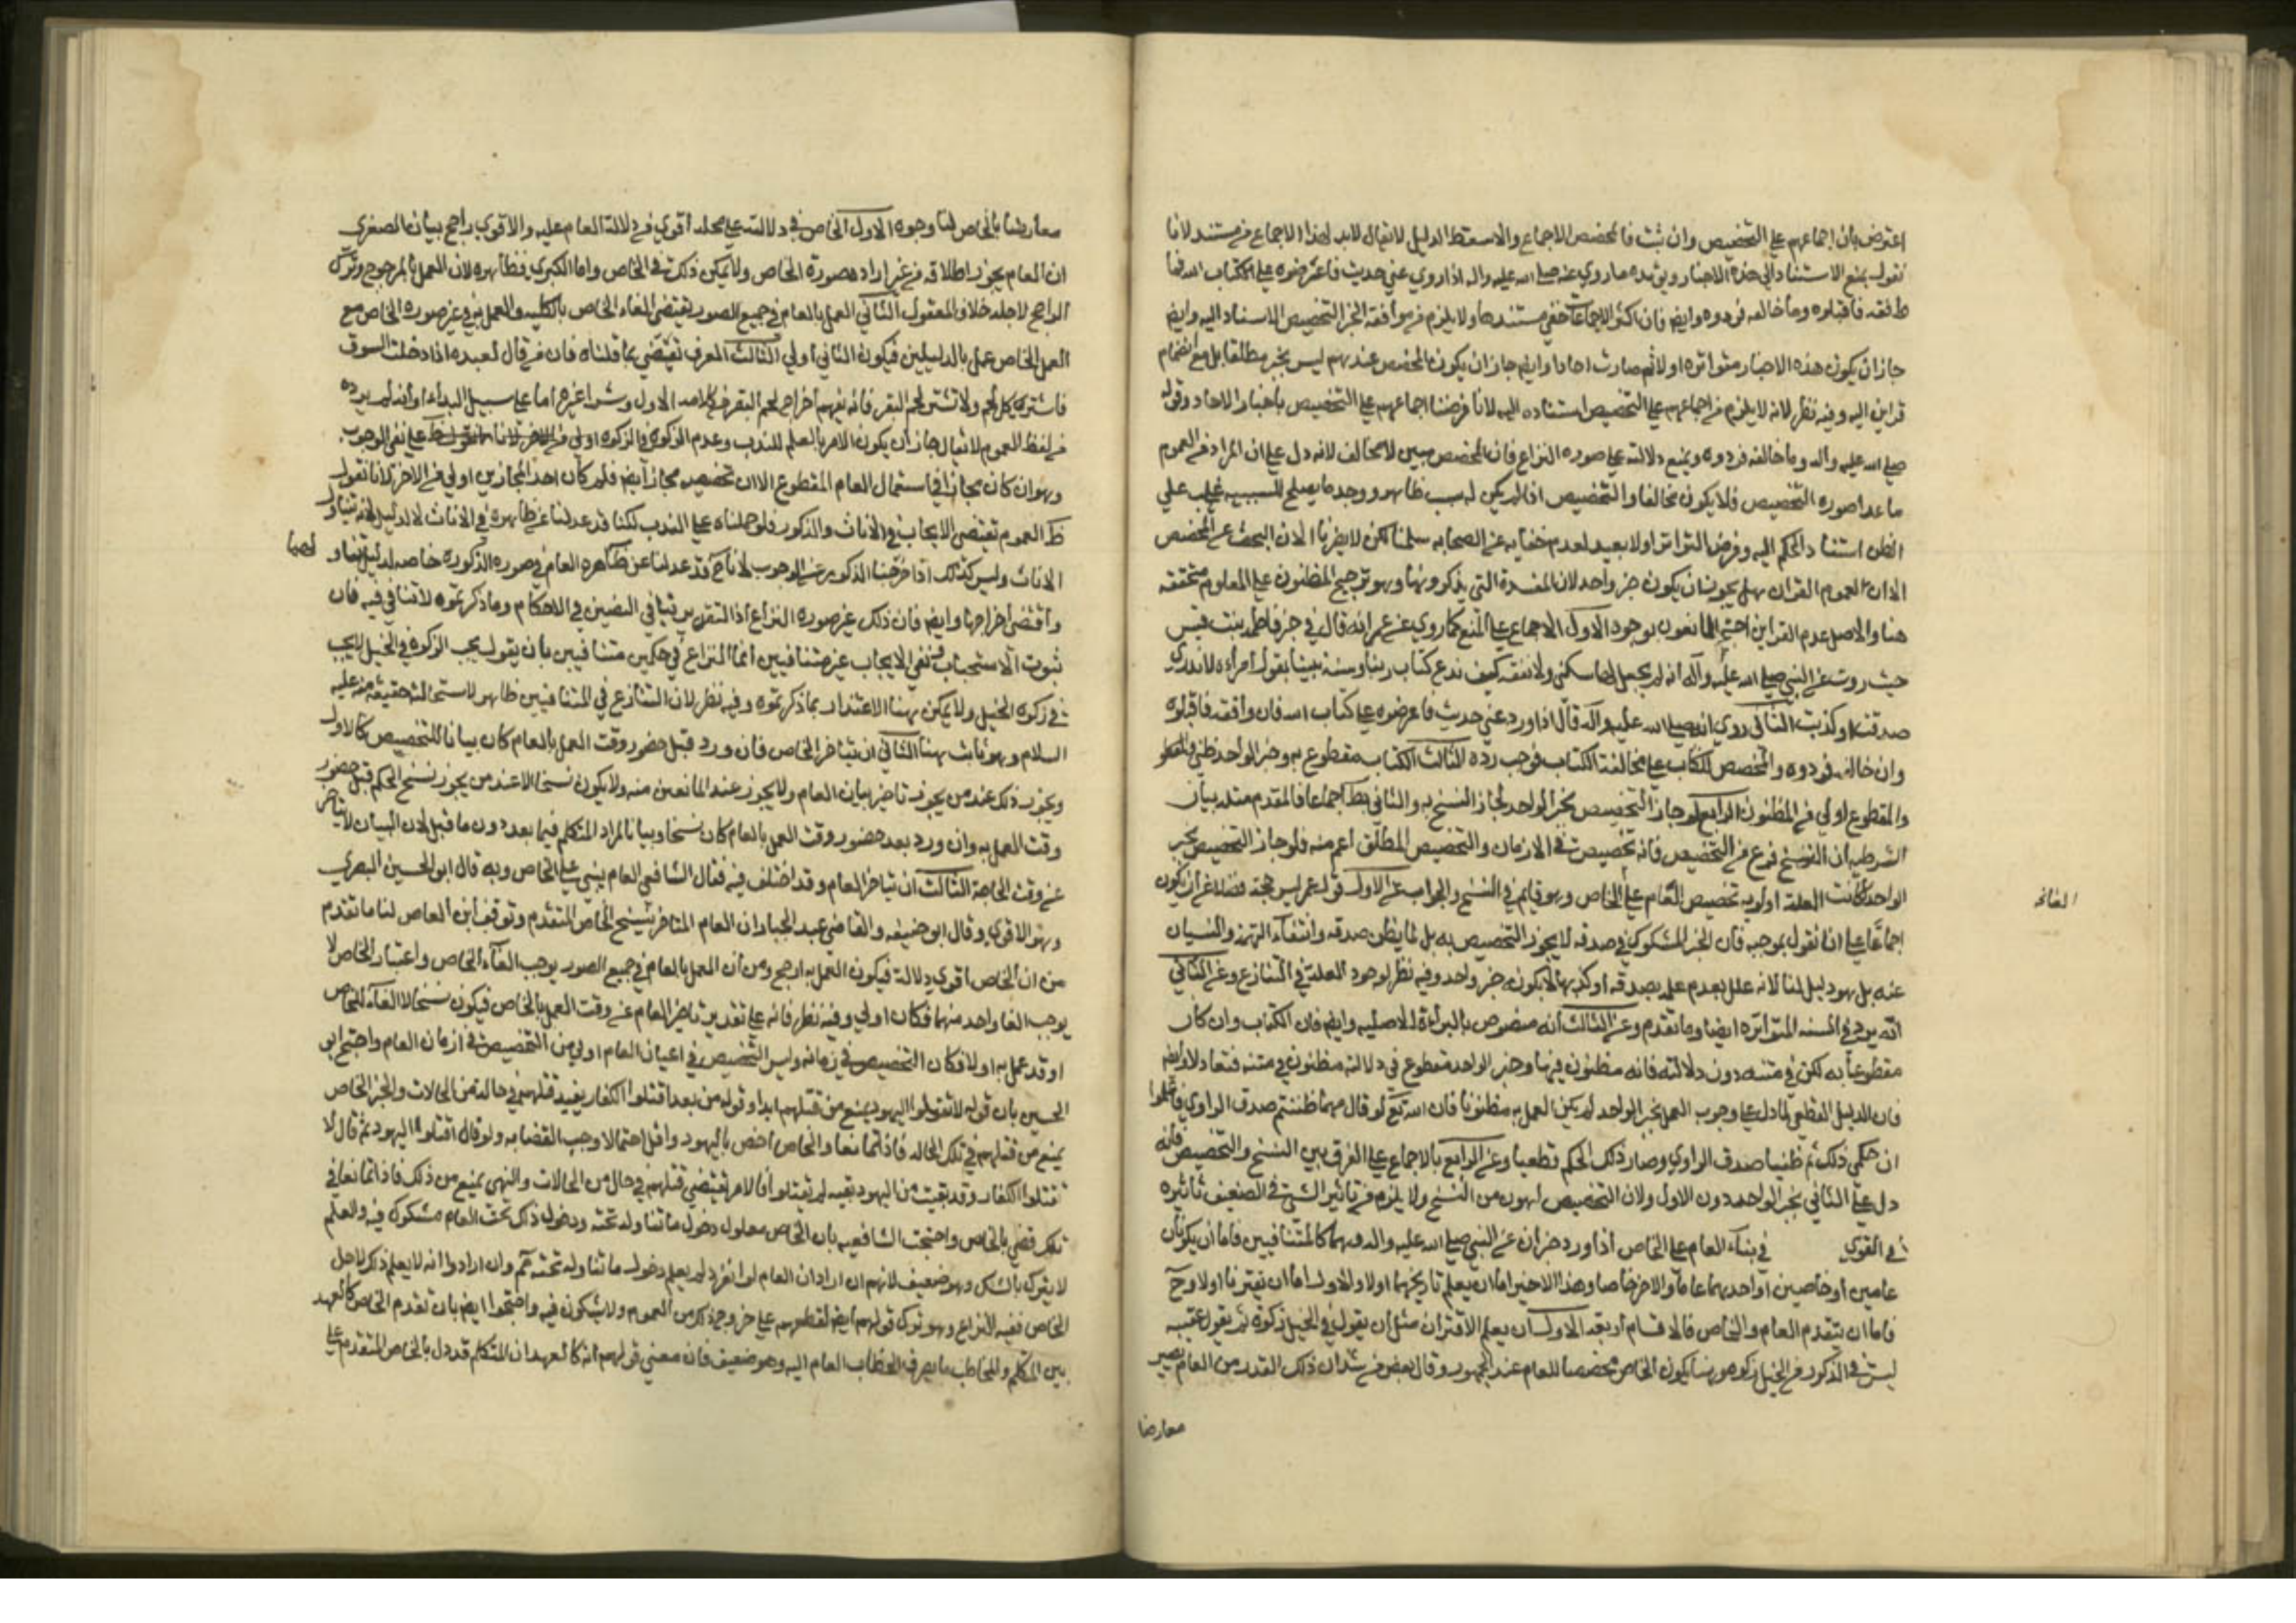 اعترض بان اجماعهم على التخصيص وان ثبت فالمخصص الاجماع والا سقط الدليل لا يقال لابد لهذا الاجماع من مستند لانا
نقول بمنع الاستناد الى هذه الاخبار ويؤيده ما روى عنه صلى الله عليه واله اذا روى عني حديث فاعرضوه على الكتاب الله فما
فاقبلوه وما خالفه فردوه وايض فان اكثر الاجماعات خفي مستندها ولا يلزم من موافقة الخبر التخصيص الاستناد اليه وايض
جاز ان يكون هذه الاخبار متواتره اولا ثم صارت احادا وايض جاز ان يكون المخصص عندهم ليس بخبر مطلقا بل مع انضمام
قراين اليه وفيه نظر لانه لا يلزم من اجماعهم على التخصيص استناده اليه لانا فرضنا اجماعهم على التخصيص باخبار الاحاد وقوله
صلى الله عليه واله وما خالفه فردوه ويمنع دلالته على صوره النزاع فان المخصص مبين لا مخالف لانه دل على ان المراد من العموم
ما عدا صوره التخصيص فلا يكون مخالفا والتخصيص اذا لم يكن له سبب ظاهر ووجد ما يصلح للسببيه غلب على
الظن استناد الحكم اليه وفرض التواتر اولا بعيد لعدم خفايه عن الصحابه سلمنا لكن لا يضرنا الان البحث عن المخصص
الان لعموم القران هل يجوز ان يكون خبر واحد لان المفسدة التي يذكرونها وهو ترجيح المظنون على المعلوم متحققه
هنا والاصل عدم القراين احتج المانعون بوجوه الاول الاجماع على المنع كما روي عن عمر انه قال في خبر فاطمه بنت قيس
حيث روت عن النبي صلى الله عليه وآله انه لم يجعل لها سكنى ولا نفقه كيف ندع كتاب ربنا وسنة نبينا بقول امرأة لا ندري
صدقت او كذبت الثاني روي انه صلى الله عليه وآله قال اذا ورد عني حديث فاعرضوه على كتاب الله فان وافقه فاقبلوه
وان خالفه فردوه والمخصص للكتاب على مخالفة الكتاب فوجب رده الثالث الكتاب مقطوع به وخبر الواحد ظني
والمقطوع اولى من المظنون الرابع لو جاز التخصيص بخبر الواحد لجاز النسخ به والثاني بط اجماعا فالمقدم مثله بيان
الشرطيه ان النسخ فرع من التخصيص فانه تخصيص في الازمان والتخصيص المطلق اعم منه فلو جاز التخصيص بخبر
الواحد لكانت العلة اولويه تخصيص العام على الخاص وهو قايم في النسخ والجواب عن الاول قول عمر ليس حجة فضلا عن ان يكون
اجماعا على انا نقول بموجبه فان الخبر المشكوك في صدقه لا يجوز التخصيص به بل لما يظن صدقه وانتفاء الهزء والنسيان
عنه بل هو دليل لنا لانه علل بعدم علمه بصدقه او كذبها لا بكونه خبر واحد وفيه نظر لوجود العلة في التنازع وعن الثاني
انه يرد في السنه المتواتره ايضا وما تقدم وعن الثالث انه منقوص بالبراءة الاصليه وايض فان الكتاب وان كان
مقطوعا به لكن في متنه دون دلالته فانه مظنون فيها وخبر الواحد مقطوع في دلالته مظنون في متنه فتعادلا وايض
فان الدليل القطعي لما دل على وجوب العمل بخبر الواحد لم يكن العمل به مظنونا فان الله تع لو قال مهما ظننتم صدق الراوي فاعملوا
ان حكمي ذلك ثم ظننا صدق الراوي وصار ذلك الحكم قطعيا وعن الرابع بالاجماع على الفرق بين النسخ والتخصيص فانه
دل على الثاني بخبر الواحد دون الاول ولان التخصيص اهون من النسخ ولا يلزم من تاثير الشئ في الضعيف تاثيره
في القوي في بناء العام على الخاص اذا ورد خبران عن النبي صلى الله عليه واله وهما كالمتنافيين فاما ان يكونا
عامين او خاصين او احدهما عاما والاخر خاصا وهذا الاخير اما ان يعلم تاريخهما اولا والاول اما ان يقترنا اولا وح
فاما ان يتقدم العام والخاص فالاقسام اربعة الاول ان يعلم الاقتران مثل ان يقول في الخيل زكوة ثم يقول عقيبه
ليس في الذكور من الخيل زكوه وهنا يكون الخاص مخصصا للعام عند الجمهور وقال بعض من شذ ان ذلك القدر من العام يصير
معارضا
معارضا بالخاص لنا وجوه الاول الخاص في دلالته على محله اقوى من دلالة العام عليه والاقوى راجح بيان الصغرى
ان العام يجوز اطلاقه من غير ارادة صورة الخاص ولا يمكن ذلك في الخاص واما الكبرى فظاهره لان العمل بالمرجوح وترك
الراجح لاجله خلاف المعقول الثاني العمل بالعام في جميع الصور يقتضي الغاء الخاص بالكليه والعمل به في غير صوره الخاص مع
العمل الخاص عمل بالدليلين فيكون الثاني اولى الثالث العرف يقتضي بما قلناه فان من قال لعبده اذا دخلت السوق
فاشتر كل لحم ولا تشتر لحم البقر فانه يفهم اخراج لحم البقر من كلامه الاول وشراء غيره اما على سبيل البداء او انه لم يرده
من لفظ العموم لا يقال جاز ان يكون الامر بالعلم للندب وعدم الذكوة في الزكوه اولى من الاخر لانا نقول على نفي الوجوب
وهو ان كان مجازا في استعمال العام المقطوع الا ان تخصيصه مجاز ايض فلم كان احد المجازين اولى من الاخر لانا نقول
ظ العموم يقتضي الايجاب في الاناث والذكور فلو حملناه على الندب لكنا قد عدلنا عن ظاهره في الاناث لا لدليل لانه تناول
الاناث وليس كذلك اذا خرجنا الذكور عن الوجوب لانا ح قد عدلنا عن ظاهره العام في صوره الذكوره خاصه لدليل تناولها
واقتضى اخراجها وايض فان ذلك غير صوره النزاع اذ التقدير تنافي النصين في الاحكام وما ذكرتموه لا تنافي فيه فان
ثبوت الاستحباب ونفي الايجاب غير متنافيين انما النزاع في حكمين متنافيين بان يقول يجب الزكوه في الخيل لا يجب
في زكوه الخيل ولا يمكن هنا الاعتذار بما ذكرتموه وفيه نظر لان التنازع في المتنافيين ظاهر لاستحالته حقيقه منه عليه
السلام وهو ثابت هنا الثاني ان يتاخر الخاص فان ورد قبل حضور وقت العمل بالعام كان بيانا للتخصيص كالاول
ويجوز ذلك عند من يجوز تاخير بيان العام ولا يجوز عند المانعين منه ولا يكون نسخا الا عند من يجوز نسخ الحكم قبل حضور
وقت العمل به وان ورد بعد حضور وقت العمل بالعام كان نسخا وبيانا لمراد المتكلم فيما بعد دون ما قبل لان البيان لا يتاخر
عن وقت الحاجة الثالث ان يتاخر العام وقد اختلف فيه فقال الشافعي العام يبنى على الخاص وبه قال ابو الحسين البصري
وهو الاقوى وقال ابو حنيفه والقاضي عبد الجبار ان العام المتاخر ينسخ الخاص المتقدم وتوقف ابن العاص لنا ما تقدم
من ان الخاص اقوى دلالة فيكون العمل به ارجح ومن ان العمل بالعام في جميع الصور يوجب الغاء الخاص واعتبار الخاص لا
يوجب الغا واحد منهما فكان اولى وفيه نظر فانه على تقدير تاخير العام عن وقت العمل بالخاص فيكون نسخا لا الغاء للخاص
او قد عمل به اولا فكان التخصيص في زمانه وليس التخصيص في اعيان العام اولى من التخصيص في ازمان العام واحتج ابو
الحسين بان قوله لا تقتلوا اليهود يمنع من قتلهم ابدا وقوله من بعد اقتلوا الكفار يفيد قتلهم في حالة من الحالات والخبر الخاص
يمنع من قتلهم في تلك الحاله فاذا تمانعا والخاص اخص باليهود واقل احتمالا وجب القضا به ولو قال اقتلوا اليهود ثم قال لا
تقتلوا الكفار وقد بقيت من اليهود بقيه لم يقتلوا فالامر يقتضي قتلهم في حال من الحالات والنهي يمنع من ذلك فاذا تمانعا في
تلك قضي بالخاص واحتجت الشافعيه بان الخاص معلول دخول ما تناوله تحته ودخول ذلك تحت العام مشكوك فيه والعلم
لا يترك بالشك وهو ضعيف لانهم ان ارادوا ان العام لو انفرد لم يعلم دخول ما تناوله تحته ثم وان ارادوا انه لا يعلم ذكر لاجل
الخاص ففيه النزاع وهو ترك قولهم ايض لقطعهم على خروج ذكر من العموم ولا يشكون فيه واحتجوا ايض بان تقدم الخاص كالعهد
بين المتكلم والمخاطب ما يصرف الخطاب العام اليه وهو ضعيف فان معنى قولهم انه كالعهد ان المتكلم قد دل بالخاص المتقدم على